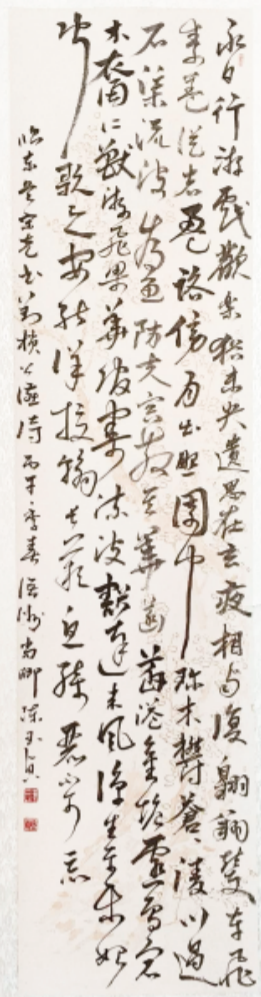 永日行游戲歡樂猶未央遺思在玄夜相与復翱翔輦車飛
素蓋從者盈路傍月出照園中珍木欝蒼〻清川過
石渠流波為魚防夫容散其華菡萏溢金塘靈鳥宿
水裔仁獸游飛梁華館寄流波豁達来風涼生平未始
聞歌之安能詳投翰長歎息綺麗不可忘
臨東吴宋克書劉楨公讌詩丙申季春浯洲陳玉貞